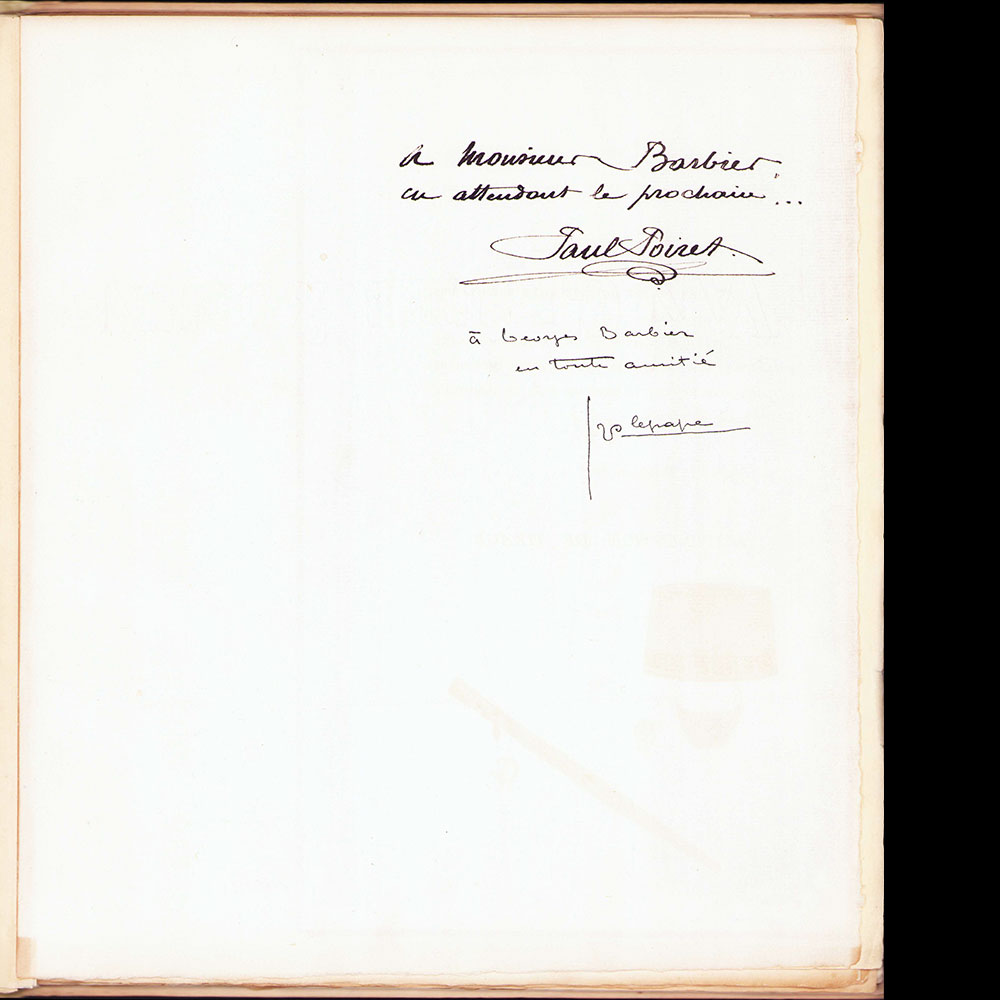 à Monsieur Barbier,
en attendant le prochain...
Paul Poiret.
à Georges Barbier
en toute amitié
lepape